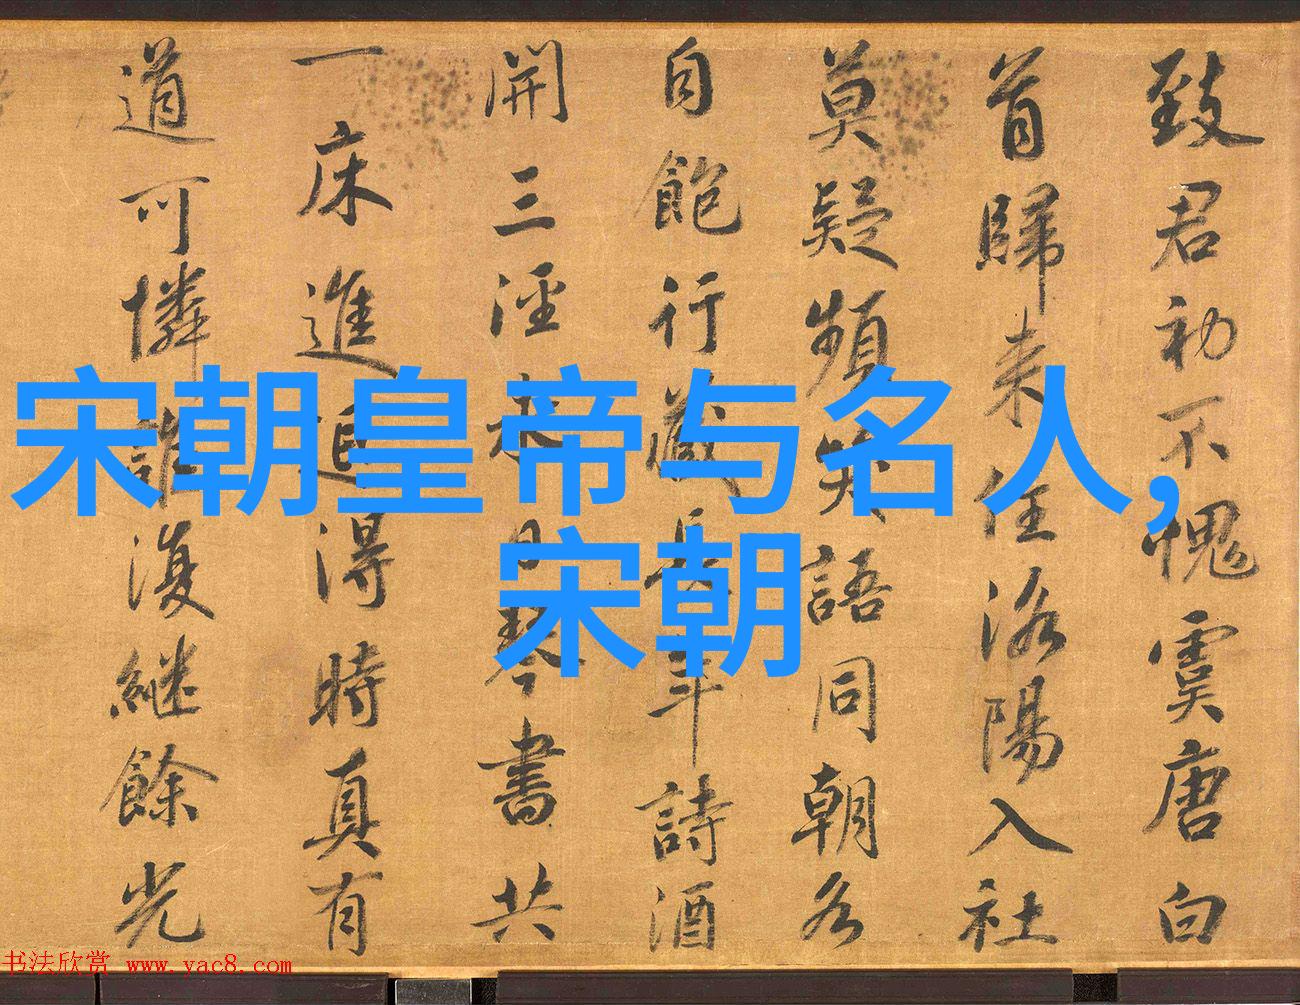 致君初不愧虞唐白
首歸来住洛陽入社
莫疑頻笑語同朝各
自飽行藏長年詩酒
開三涇末日琴書共
一床進退得時真有
道可憐誰復継餘光
宋朝皇帝与名人,
宋朝
书法欣赏 www.yac8.com